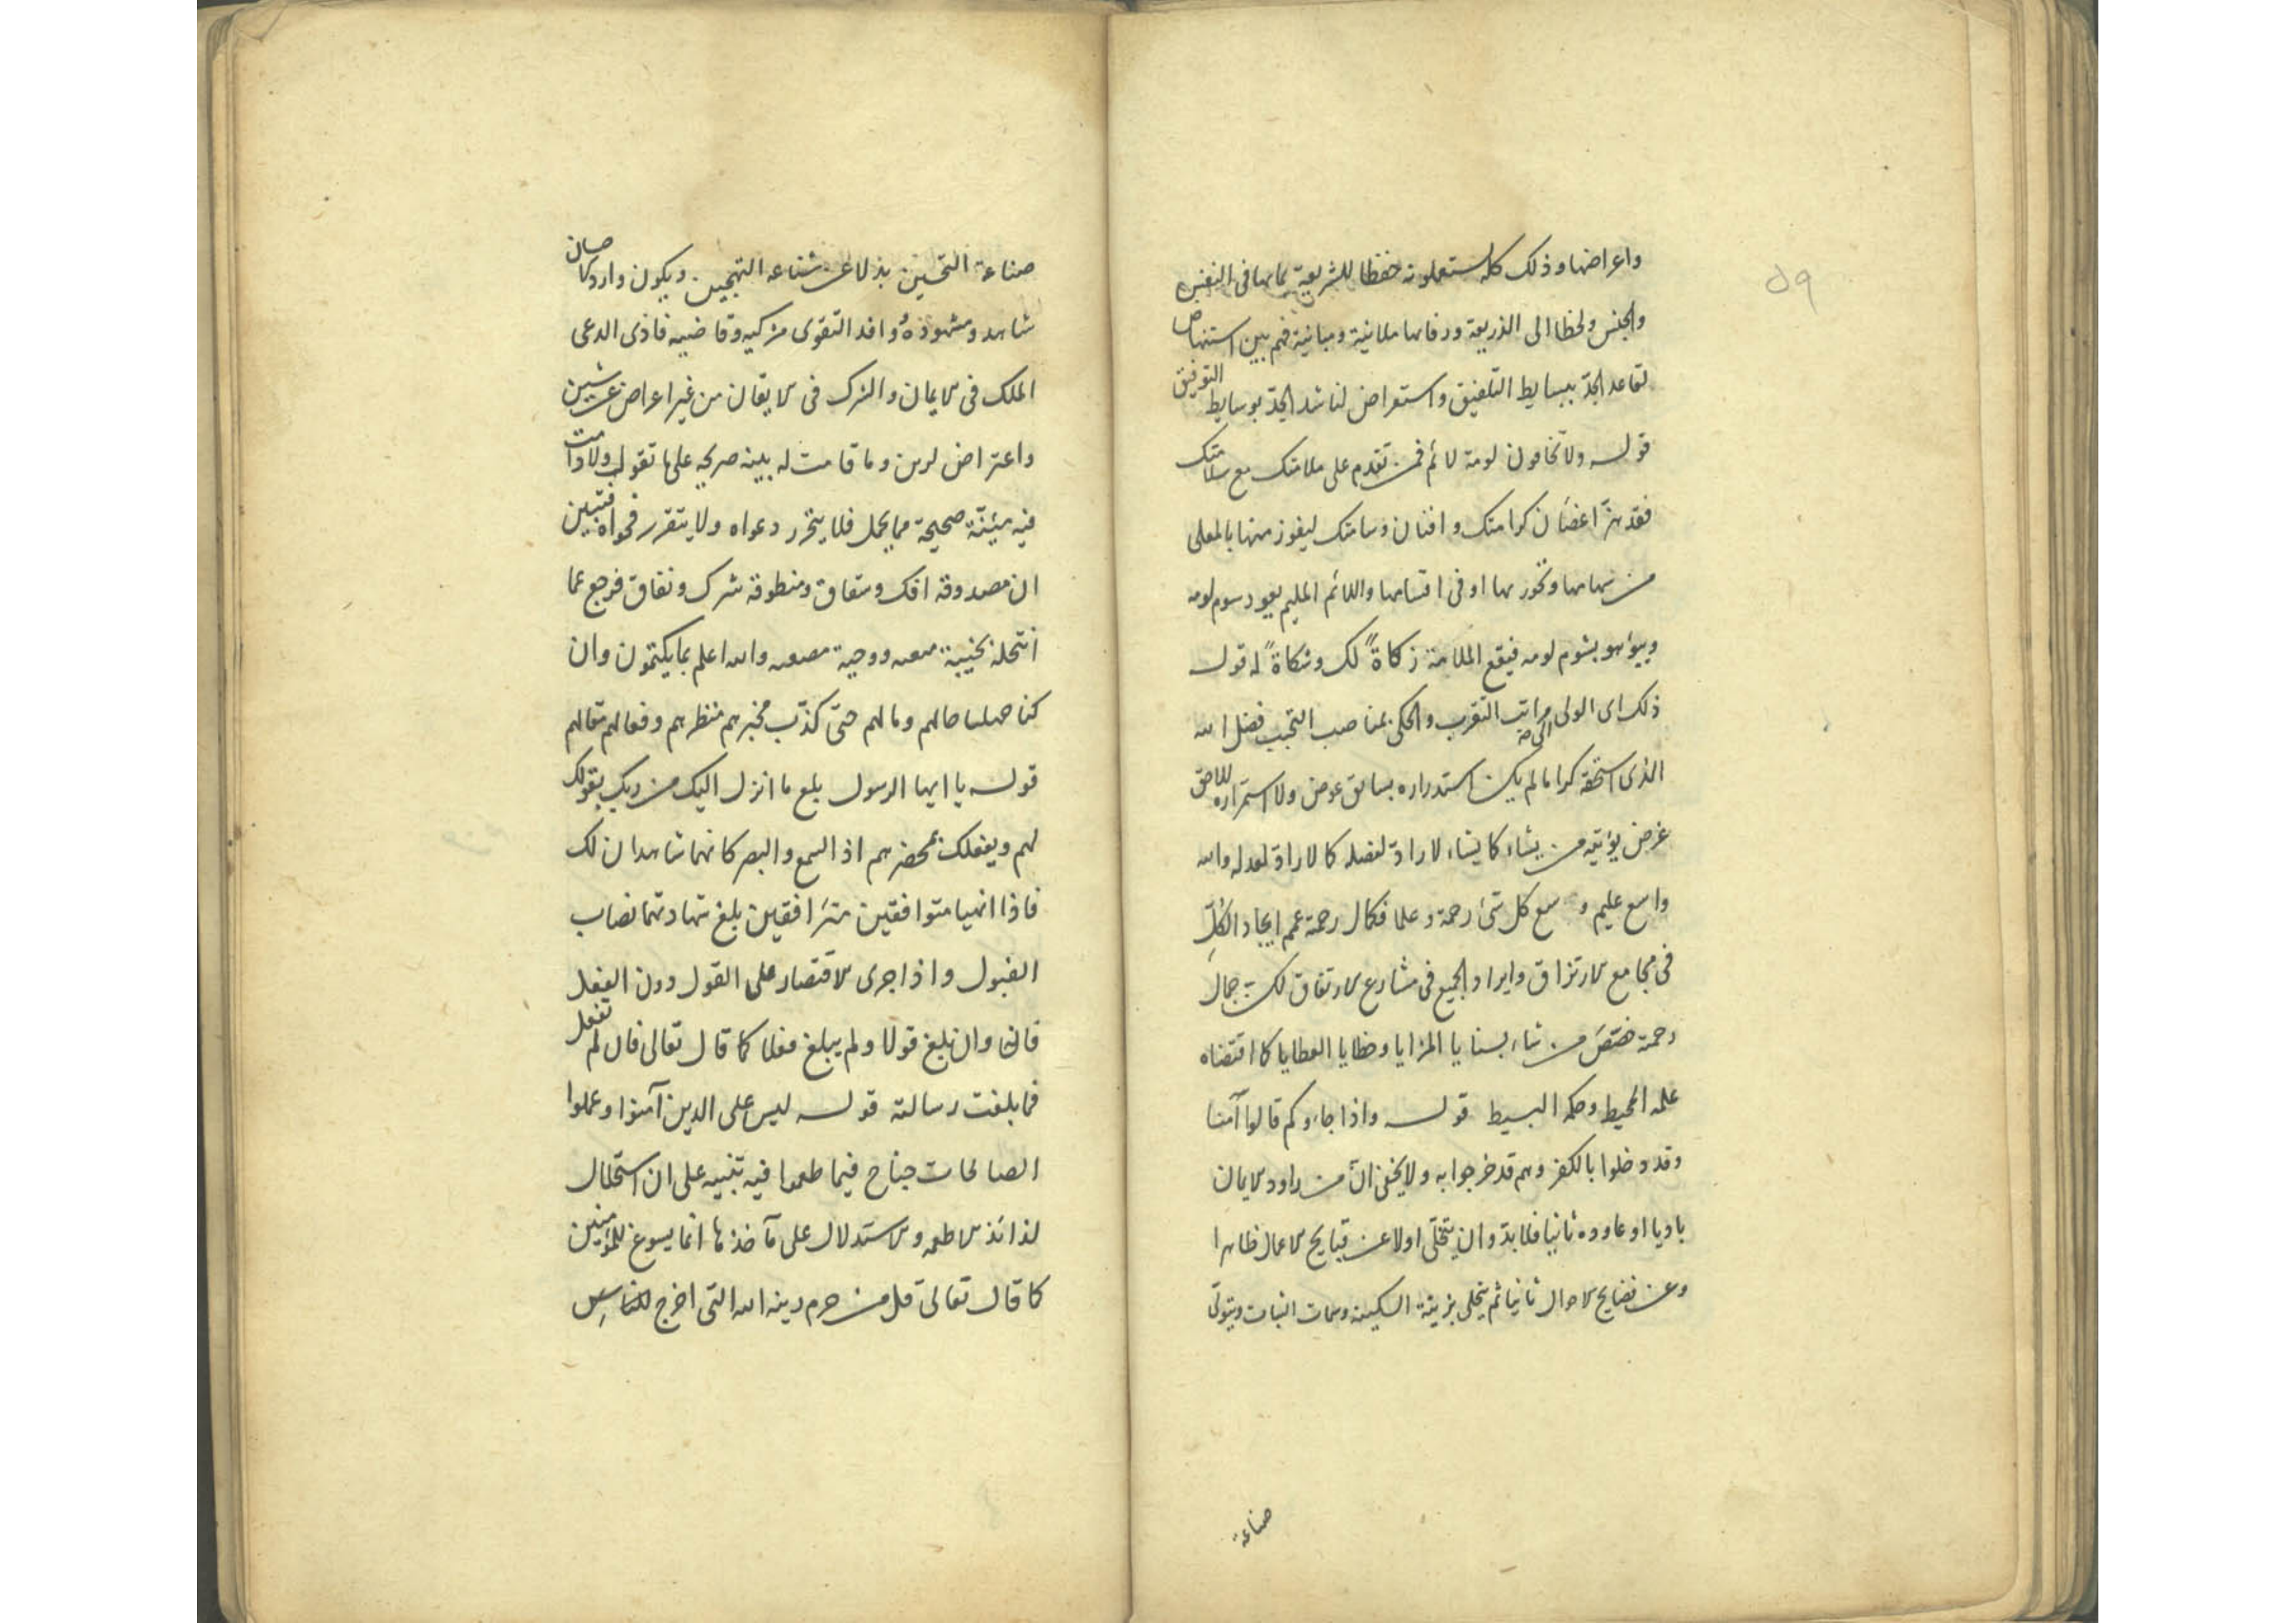 ٥٩
واعراضها وذلك كله يستعملونه حفظا للشريعة بمالها فى النفس
والجنس ولحظا الى الذريعة ورفالها ملانية ومبانية فهم بين استنهاض
لقاعد الجد ببسايط التلفيق واستعراض لناشد الجد بوسايط التوفيق
قوله ولا تخافون لومة لائم فمن تقدم على ملامتك مع سلامتك
فقد هز اغضان كرامتك وافنان وسامتك ليفوز منها بالمعلى
من سهامها وتحوز بها اوفى اقسامها واللائم المليم يعود سوم لومه
ويبؤ هو بشوم لومه فيقع الملامة زكاةً لك وشكاةً له قوله
ذلك اى الولى مراتب التقرب والحكى بمناصب التجبب فضل الله
الذى استحقه كراما لم يكن استدراره بسابق عوض ولا استمراره للاحق
غرض يؤتيه من يشاء كما يشاء لا رادة لفضله كما لا رادة لعدله والله
واسع عليم وسع كل شئ رحمة وعلما فكمال رحمة عمم ايجاد الكل
فى مجامع الارتزاق وايراد الجميع فى مشارع الارتفاق لكن جمال
رحمة خصص من شاء بسنايا المزايا وخطايا العطايا كما اقتضاه
علمه المحيط وحكمه البسيط قوله واذا جاؤكم قالوا آمنا
وقد دخلوا بالكفر وهم قد خرجوا به ولا يخفى ان من راود الايمان
باديا او عاوده ثانيا فلا بد وان يتخلى اولا عن قبايح الاعمال ظاهرا
وعن فضايح الاحوال ثانيا ثم يتحلى بزينة السكينة وسمات الثبات ويتولى
صناعة
صناعة التحسين بذلا عن شناعة التهجين ويكون واردكا صان
شاهد ومشهوده وافد التقوى مزكيه وقاضيه فاذى الدعى
الملك فى الايمان والترك فى الايقان من غير اعراض عن شين
واعتراض لرين وما قامت له بينه صريحه على ما تقول ولا دامت
فيه مئنّة صحيحة مما يحمل فلا يتحرر دعواه ولا يتقرر فحواه فتبين
ان مصدوقه افك وشقاق ومنطوقه شرك ونفاق فرجع عما
انتحله بخيبة ووجبة والله اعلم بما يكتمون وان
كنا جهلنا حالهم ومالهم حتى كذّب مخبرهم منظرهم وفعالهم مقالهم
قوله يا ايها الرسول بلغ ما انزل اليك من ربك بقولك
لهم وبفعلك بمحضرهم اذ السمع والبصر كانهما شاهدان لك
فاذا انهيا متوافقين مترافقين بلغ شهادتهما نصاب
القبول واذا جرى الاقتصار على القول دون الفعل
فان وان بلغ قولا ولم يبلغ فعلا كما قال تعالى فان لم تفعل
فما بلغت رسالته قوله ليس على الذين آمنوا وعملوا
الصالحات جناح فيما طعموا فيه تنبيه على ان استحلال
لذائذ الاطعمه والاستدلال على مآخذها انما يسوغ للمؤمنين
كما قال تعالى قل من حرم زينه الله التى اخرج للناس